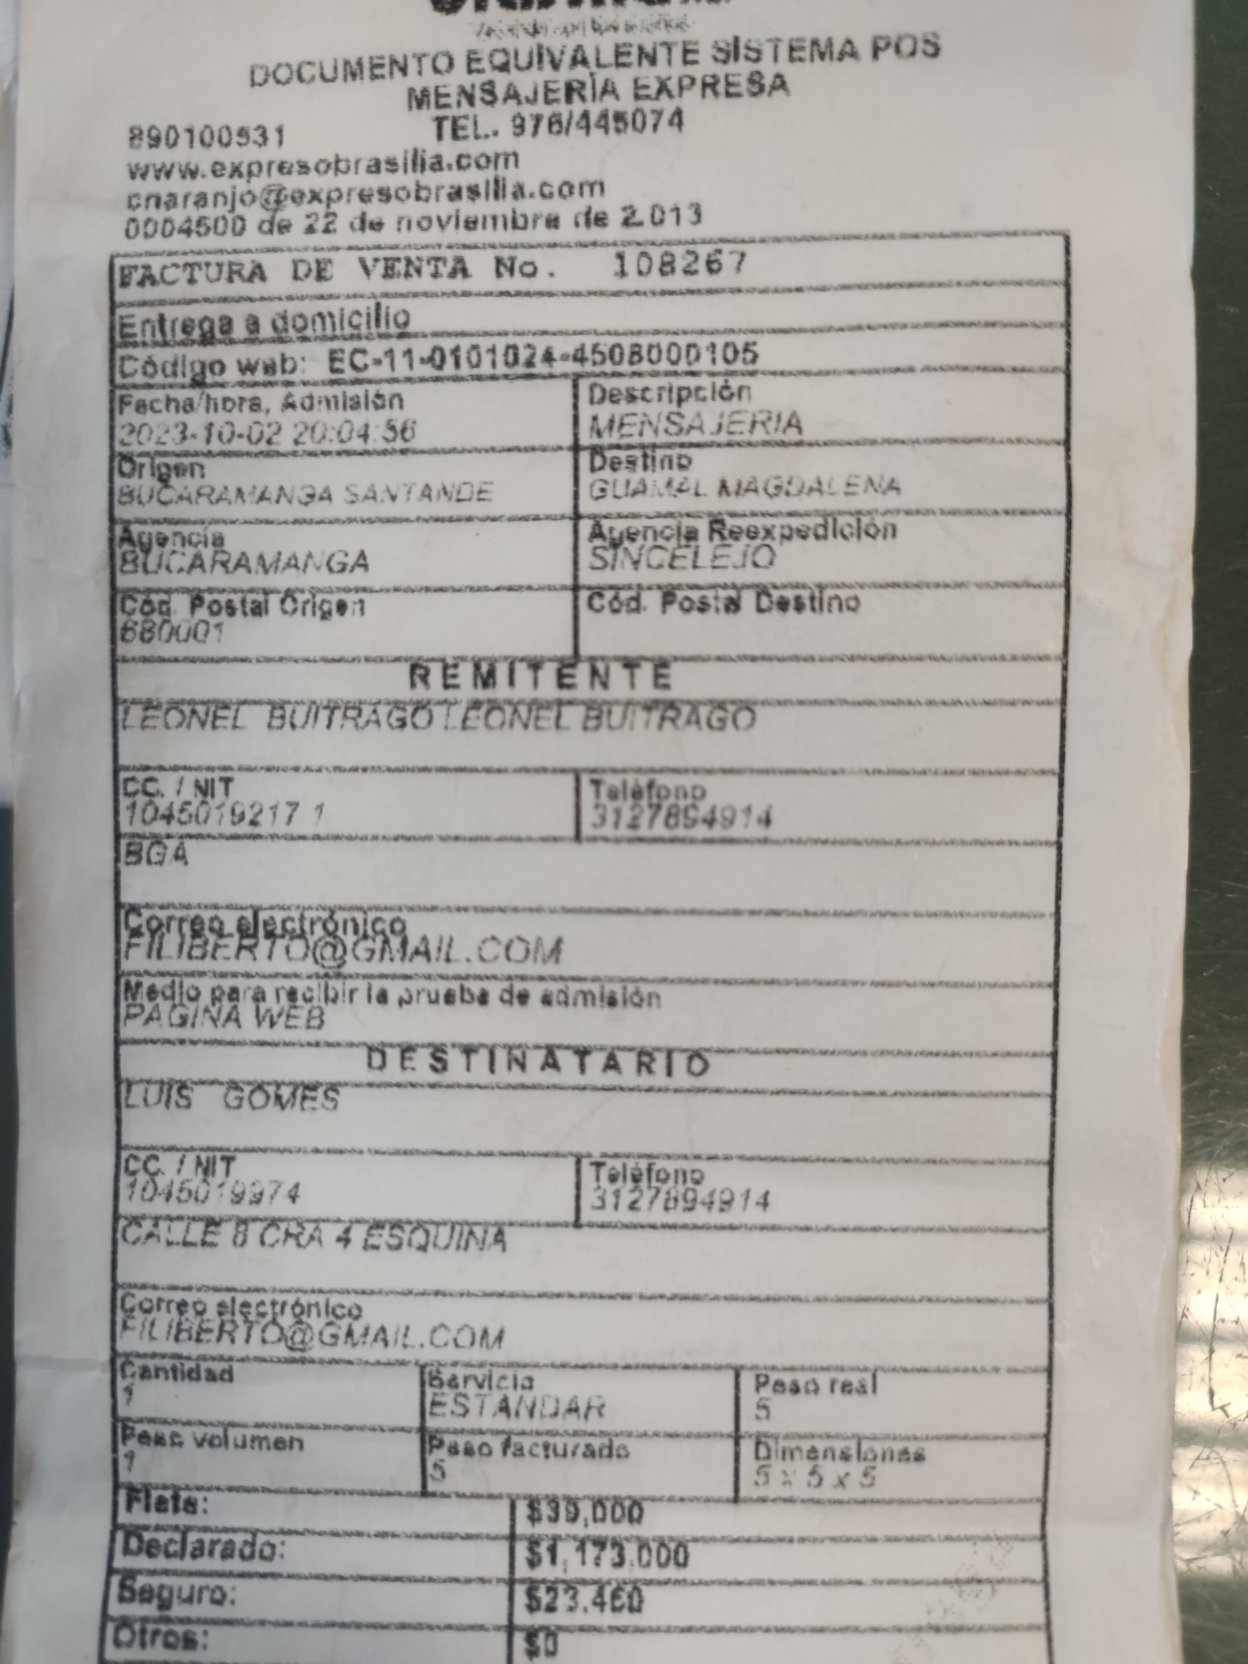 DOCUMENTO EQUIVALENTE SISTEMA POS
MENSAJERIA EXPRESA
890100531 TEL. 976/445074
www.expresobrasilia.com
cnaranjo@expresobrasilia.com
0004500 de 22 de noviembre de 2.013
FACTURA DE VENTA No. 108267
Entrega a domicilio
Código web: EC-11-0101024-4508000105
Fecha/hora, Admisión Descripción
2023-10-02 20:04:56 MENSAJERIA
Origen Destino
BUCARAMANGA SANTANDE GUAMAL MAGDALENA
Agencia Agencia Reexpedición
BUCARAMANGA SINCELEJO
Cód. Postal Origen Cód. Postal Destino
680001
REMITENTE
LEONEL BUITRAGO LEONEL BUITRAGO
CC. / NIT Teléfono
1045019217 1 3127894914
BGA
Correo electrónico
FILIBERTO@GMAIL.COM
Medio para recibir la prueba de admisión
PAGINA WEB
DESTINATARIO
LUIS GOMES
CC. / NIT Teléfono
1045019974 3127894914
CALLE 8 CRA 4 ESQUINA
Correo electrónico
FILIBERTO@GMAIL.COM
Cantidad Servicio Peso real
1 ESTANDAR 5
Peso volumen Peso facturado Dimensiones
1 5 5 x 5 x 5
Flete: $39,000
Declarado: $1,173,000
Seguro: $23,460
Otros: $0